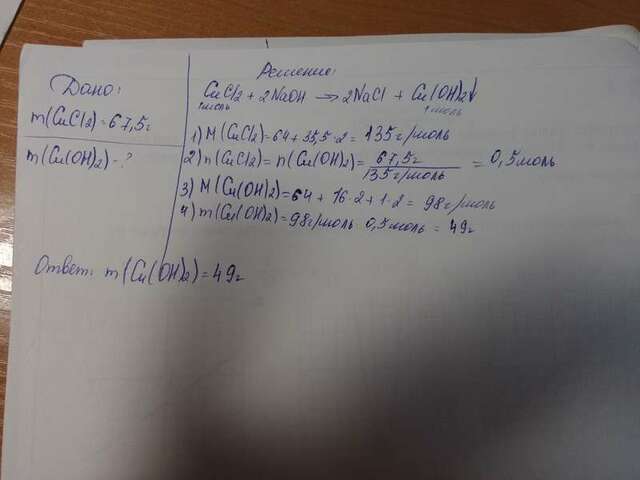 Дано:
m(CuCl2)=67,5г
m(Cu(OH)2)-?
Решение:
CuCl2 + 2NaOH → 2NaCl + Cu(OH)2↓
1моль 1моль
1) M(CuCl2)=64+35,5·2= 135г/моль
2) n(CuCl2)=n(Cu(OH)2)= 67,5г / 135г/моль = 0,5моль
3) M(Cu(OH)2)=64+16·2+1·2= 98г/моль
4) m(Cu(OH)2)=98г/моль·0,5моль = 49г
Ответ: m(Cu(OH)2)=49г